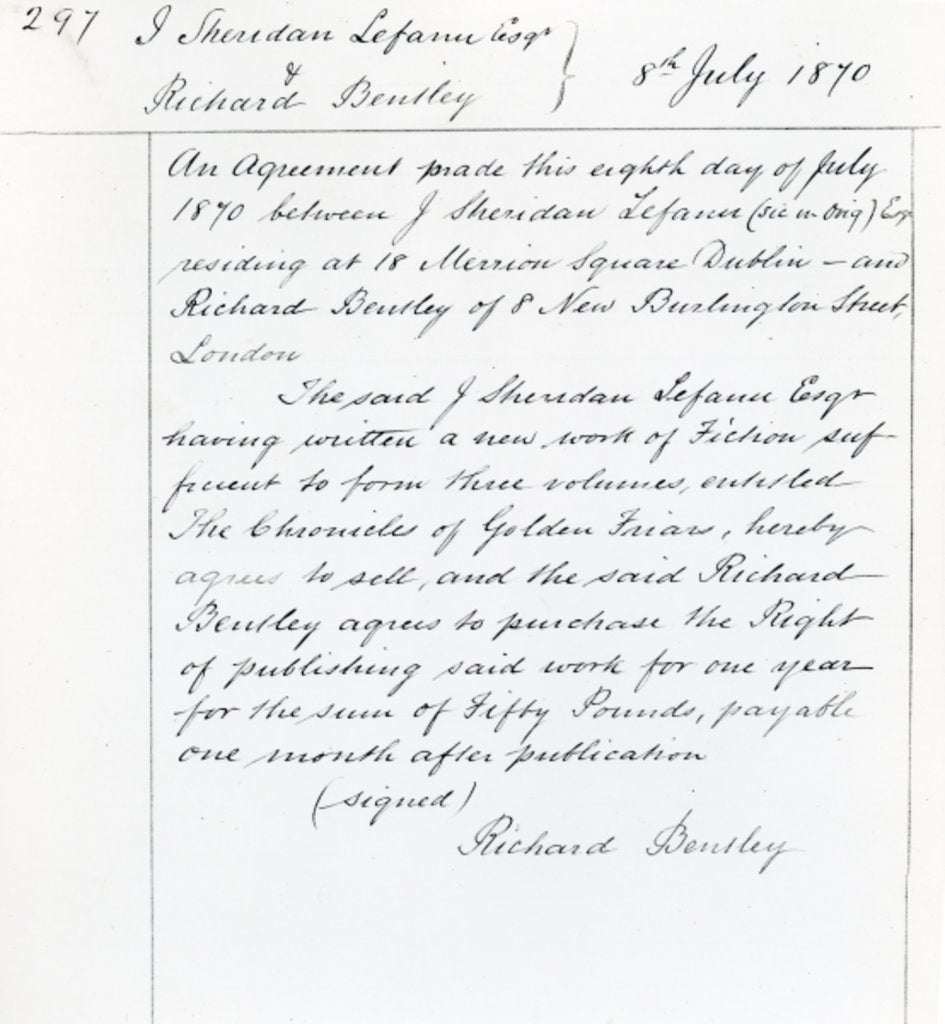 297
J Sheridan Lefanu Esqr
&
Richard Bentley
8th July 1870
An Agreement made this eighth day of July
1870 between J Sheridan Lefanu (sic in orig) Esqr
residing at 18 Merrion Square Dublin – and
Richard Bentley of 8 New Burlington Street,
London
The said J Sheridan Lefanu Esqr
having written a new work of Fiction suf-
ficient to form three volumes, entitled
The Chronicles of Golden Friars, hereby
agrees to sell, and the said Richard
Bentley agrees to purchase the Right
of publishing said work for one year
for the sum of Fifty Pounds, payable
one month after publication
(signed)
Richard Bentley